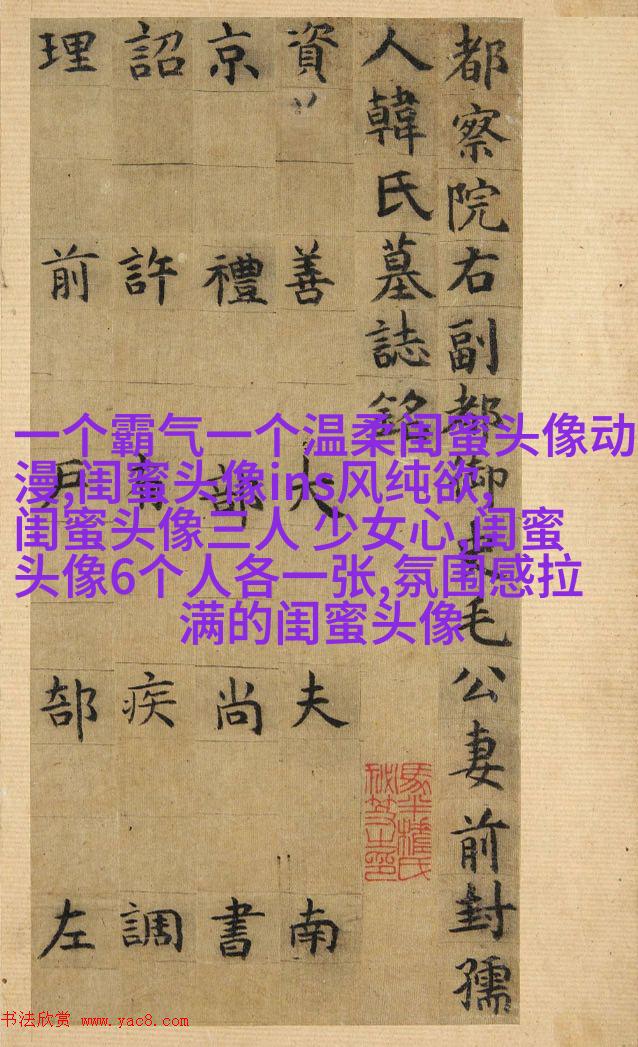 都察院右副都御史毛公妻前封孺
人韓氏墓誌銘
資善大夫南
京禮部尚書
詔許有疾調
理前戶部左
一个霸气一个温柔闺蜜头像动
漫,闺蜜头像ins风纯欲,
闺蜜头像三人 少女心,闺蜜
头像6个人各一张,氛围感拉
满的闺蜜头像
书法欣赏 www.yac8.com